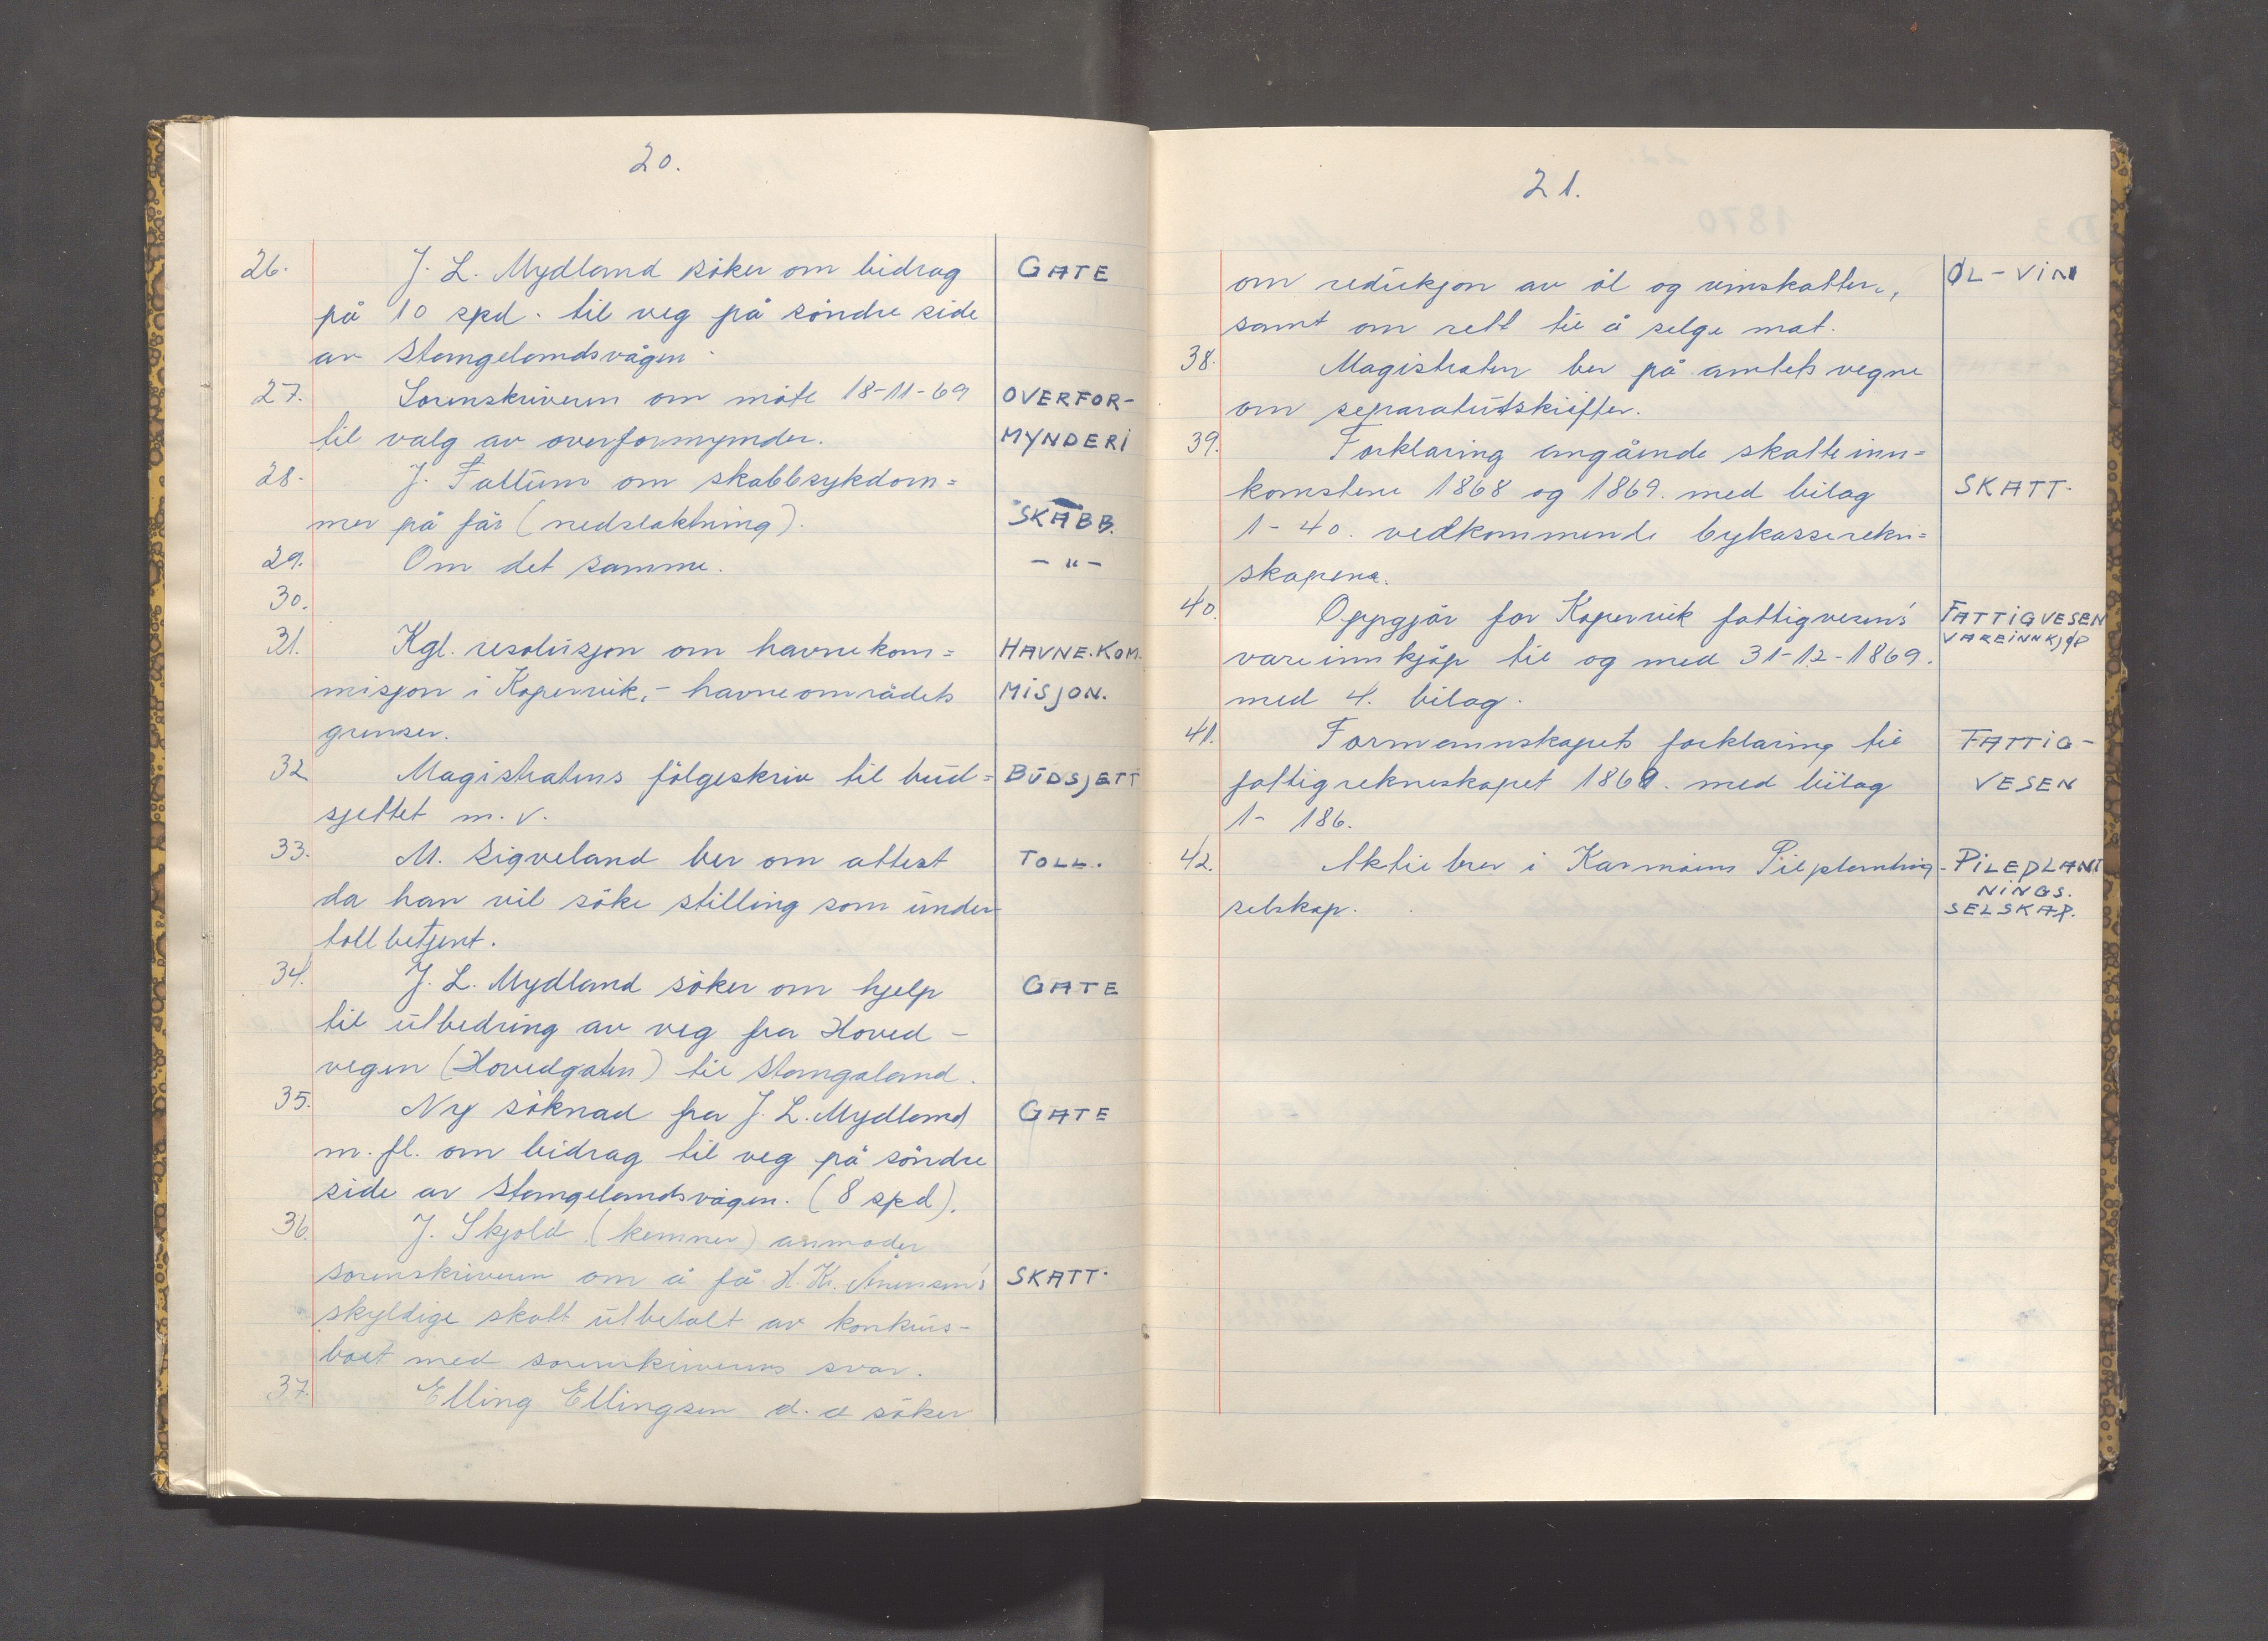 20.
26. J. L. Mydland söker om bidrag GATE
på 10 spd. til veg på söndre side
av Stangelandsvågen.
27. Sorenskriveren om möte 18-11-69 OVERFOR-
til valg av overformynder. MYNDERI
28. J. Fatlum om skabbsykdom=
mer på får (nedslaktning). SKABB.
29. Om det samme. - " -
30.
31. Kgl. resolusjon om havnekom= HAVNE.KOM.
misjon i Kopervik, - havneområdets MISJON.
grenser.
32 Magistratens fölgeskriv til bud= BUDSJETT
sjettet m. v.
33. M. Sigveland ber om attest TOLL.
da han vil söke stilling som under
tollbetjent.
34. J. L. Mydland söker om hjelp GATE
til utbedring av veg fra Hoved-
vegen (Hovedgaten) til Stangaland.
35. Ny söknad fra J. L. Mydland GATE
m. fl. om bidrag til veg på söndre
side av Stangelandsvågen. (8 spd).
36. J. Skjold (kemner) anmoder
sorenskriveren om å få H. Kr. SKATT.
skyldige skatt utbetalt av konkurs-
boet med sorenskriverens svar.
37. Elling Ellingsen d. e söker
21.
om reduksjon av öl og vinskatten, ØL-VIN
samt om rett til å selge mat.
38. Magistraten ber på amtets vegne
om separatutskrifter.
39. Forklaring angående skatteinn=
komstene 1868 og 1869. med bilag SKATT.
1-40. vedkommende bykasserekn=
skapene.
40. Oppgjör for Kopervik fattigvesen's FATTIGVESEN
VAREINNKJØP
vareinnkjöp til og med 31-12-1869.
med 4. bilag.
41. Formannskapets forklaring til FATTIG-
fattigrekneskapet 1869. med bilag VESEN
1- 186.
42. Aktiebrev i Karmöens Pileplantning- PILEPLANT
NINGS.
selskap. SELSKAP.